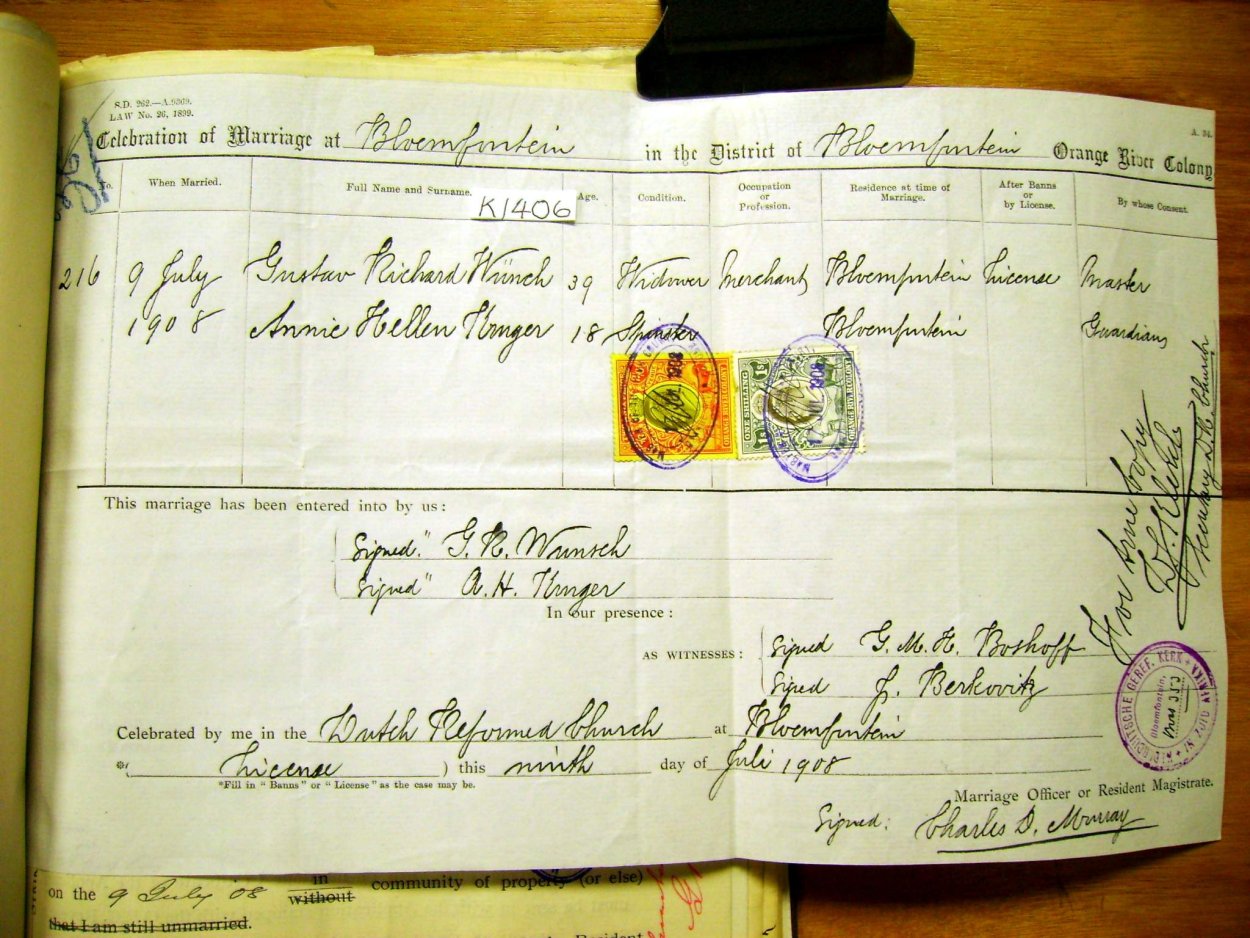 S.D. 262.—A.9369.
LAW No. 26, 1899.
A. 34.
Celebration of Marriage at Bloemfontein in the District of Bloemfontein Orange River Colony
No. When Married. Full Name and Surname. Age. Condition. Occupation or Profession. Residence at time of Marriage. After Banns or by License. By whose Consent
K1406
216 9 July Gustav Richard Wünsch 39 Widower Merchant Bloemfontein License Master
1908 Annie Hellen Kruger 18 Spinster Bloemfontein Guardian
ONE SHILLING 1s ORANGE RIVER COLONY
This marriage has been entered into by us:
Signed" G. R. Wunsch
Signed" A. H. Kruger
In our presence:
AS WITNESSES: Signed G. M. H. Boshoff
Signed J. Berkovitz
Celebrated by me in the Dutch Reformed Church at Bloemfontein
*( License ) this ninth day of Juli 1908
*Fill in "Banns" or "License" as the case may be.
Marriage Officer or Resident Magistrate.
Signed: Charles D. Murray
For true Copy
Secretary D.R. Church
NEDERDUITSCHE GEREF. KERK ZUID AFRIKA
Bloemfontein
on the 9 July '08 in without community of property (or else)
that I am still unmarried.